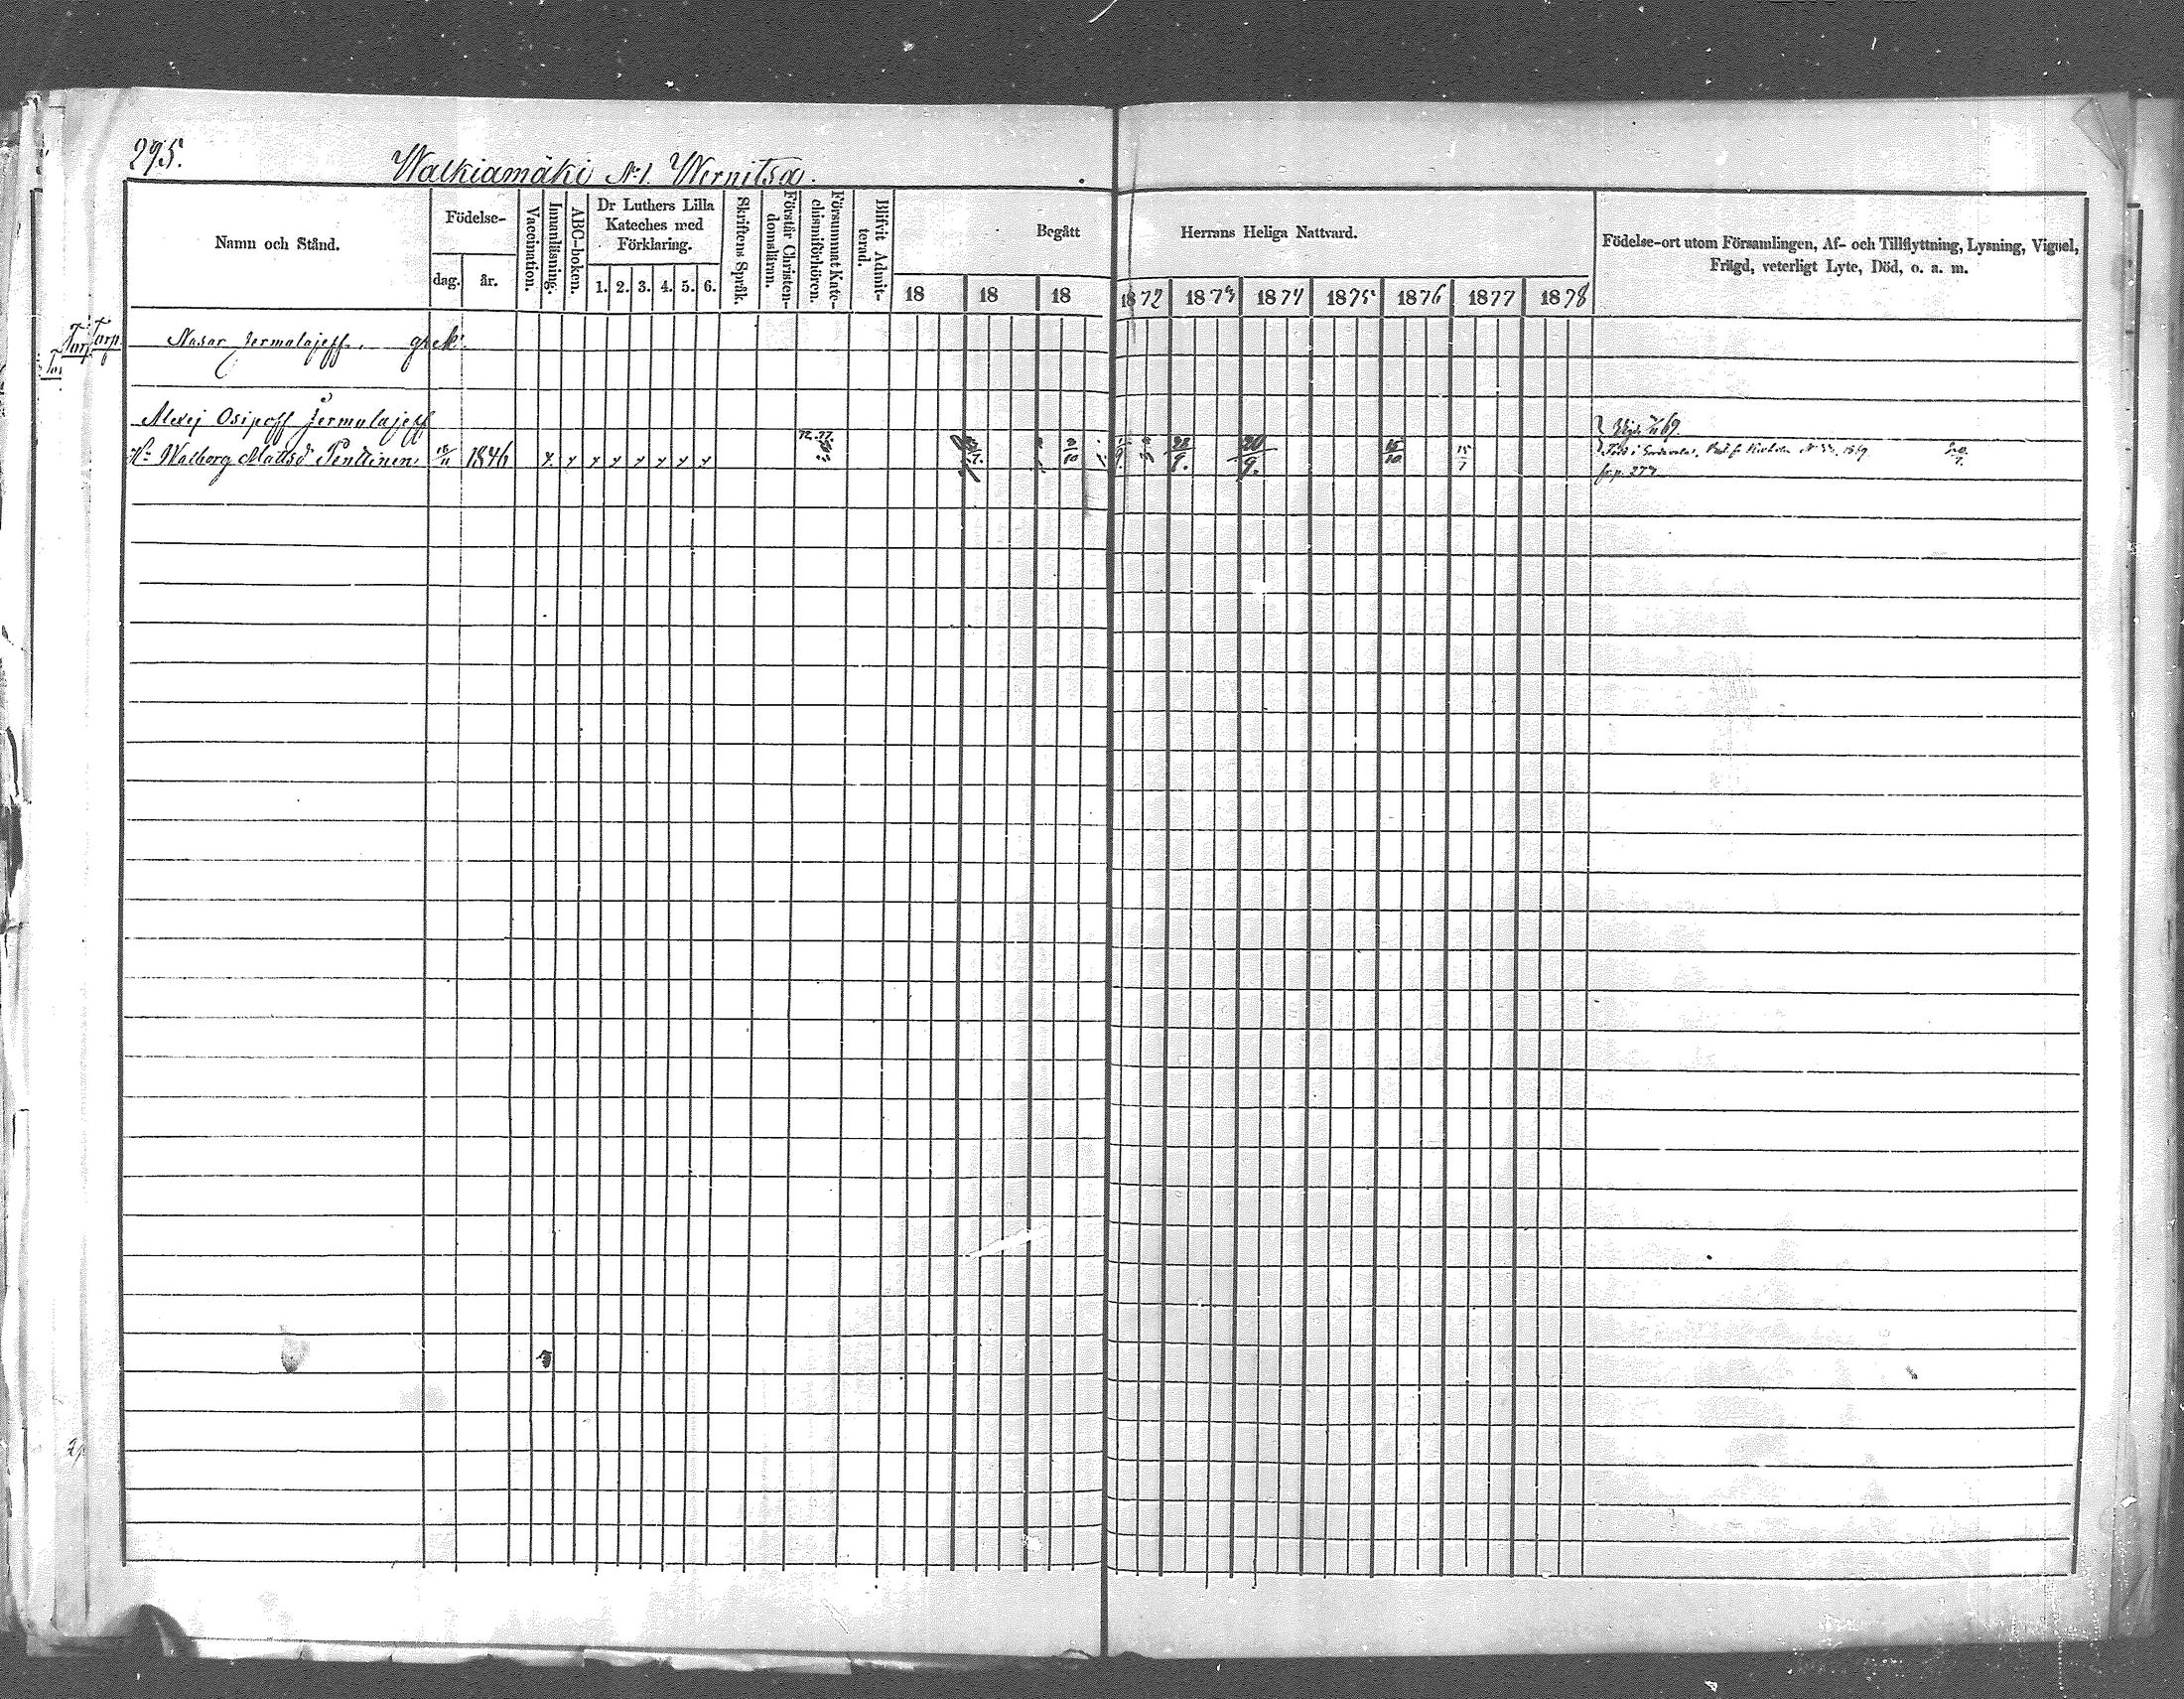 295.
Walkiamäki N:1. Wernitsa.
Namn och Stånd.
Födelse-
dag.
år.
Vaccination.
Innanläsning.
ABC-boken.
Dr Luthers Lilla
Kateches med
Förklaring.
1. 2. 3. 4. 5. 6.
Skriftens Språk.
Förstår Christen-
domsläran.
Försummat Kate-
chismiförhören.
Blifvit Admit-
terad.
Begått Herrans Heliga Nattvard.
18 18 18 1872 1873 1874 1875 1876 1877 1878
Födelse-ort utom Församlingen, Af- och Tillflyttning, Lysning, Vigsel,
Frägd, veterligt Lyte, Död, o. a. m.
Torp. Nasar Jermalajeff. grek.
Alexij Osipoff Jermalajeff
Vigde 69.
72. 77.
H: Walborg Mattsd Penttinen 1846 x x x x x x x x 28/9. 20/9. 15/10 15/7 Född i N 33. 1869
fr. p. 277.